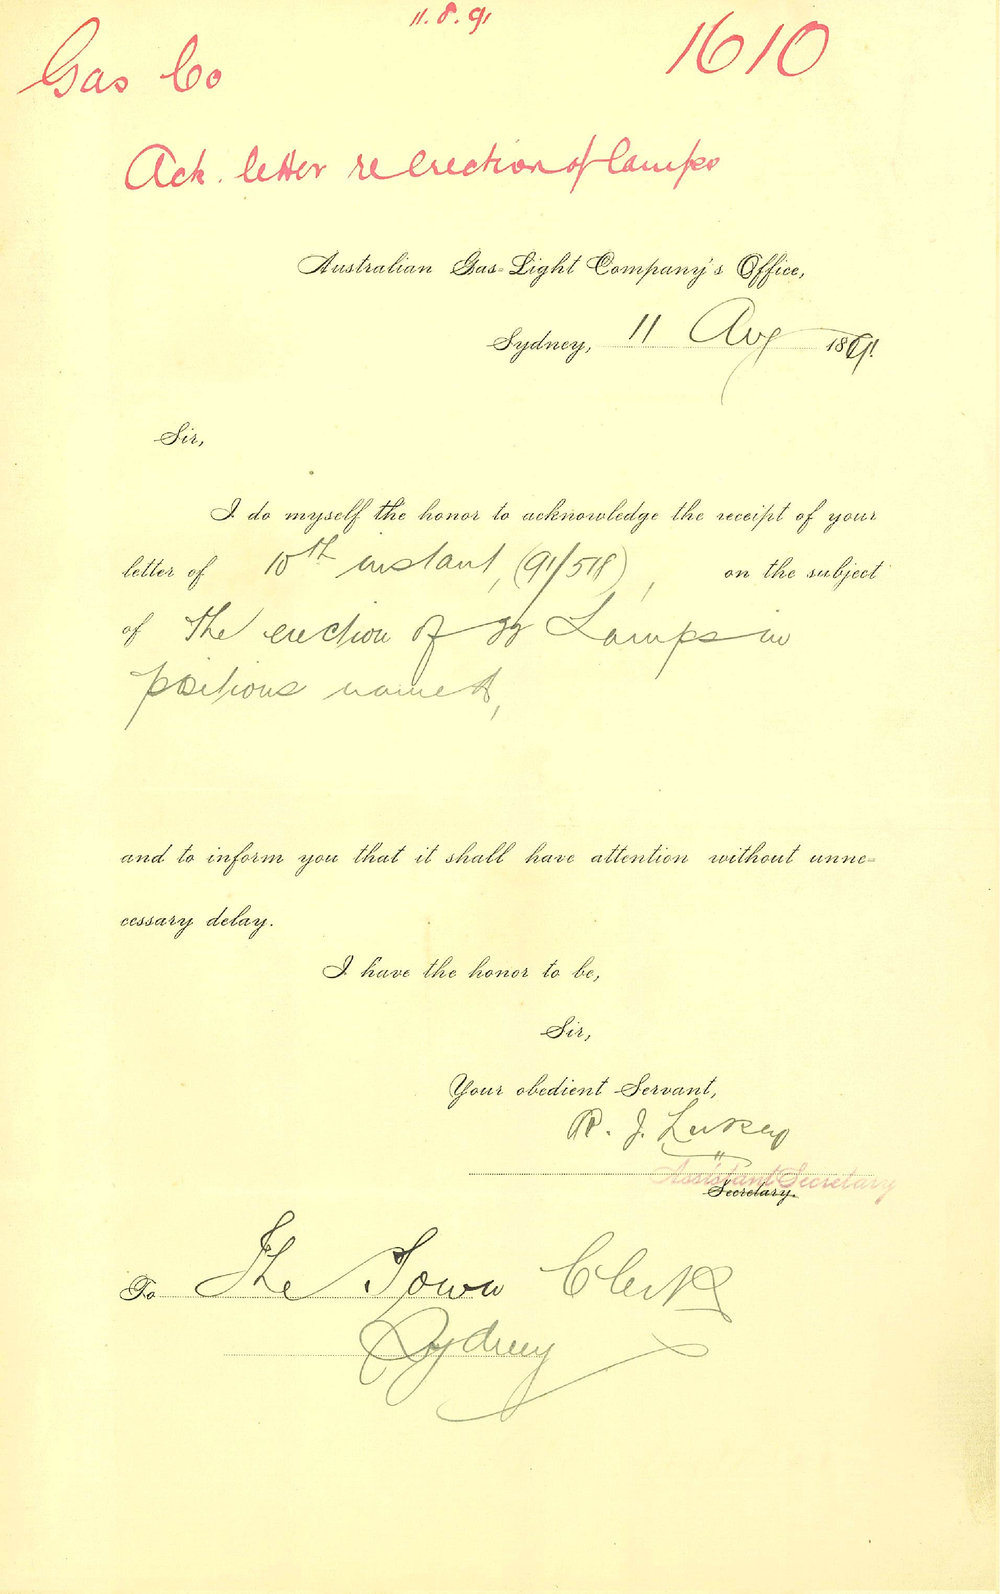 11.8.91
Gas Co
1610
Ack. letter re erection of lamps
Australian Gas-Light Company's Office,
Sydney, 11 Aug 1891.
Sir,
I do myself the honor to acknowledge the receipt of your
letter of 10th instant, (91/518), on the subject
of the erection of Lamps in
positions named,
and to inform you that it shall have attention without unne-
cessary delay.
I have the honor to be,
Sir,
Your obedient Servant,
R. J. Lukey
Assistant Secretary
Secretary.
To The Town Clerk
Sydney